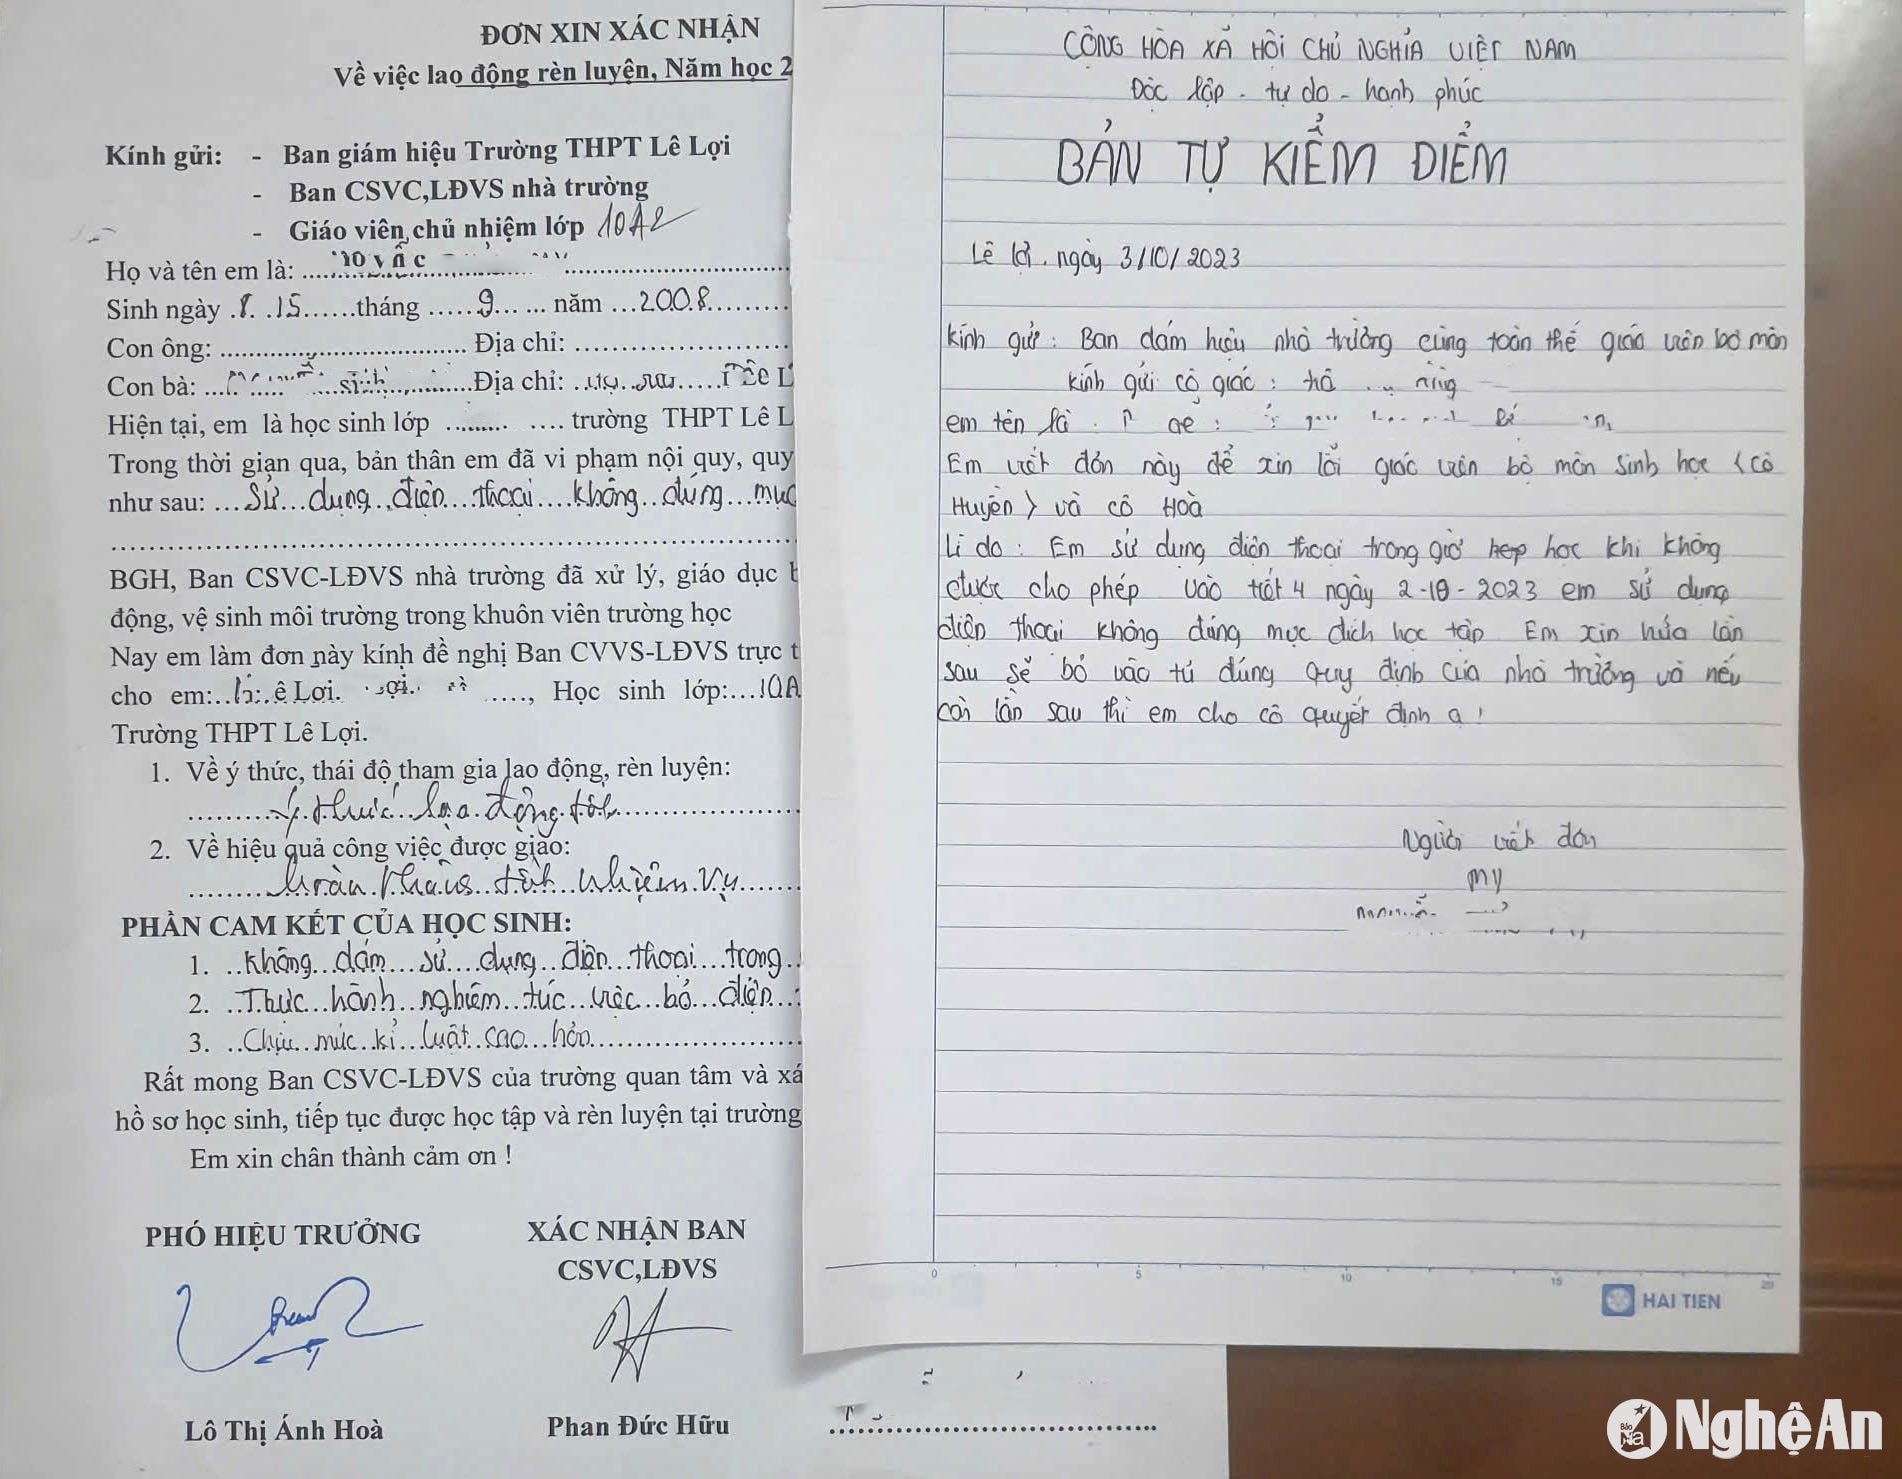 ĐƠN XIN XÁC NHẬN
Về việc lao động rèn luyện, Năm học 2
Kính gửi: - Ban giám hiệu Trường THPT Lê Lợi
- Ban CSVC,LĐVS nhà trường
- Giáo viên chủ nhiệm lớp 10A2
Họ và tên em là:
Sinh ngày 15 tháng 9 năm 2008
Con ông: Địa chỉ:
Con bà: Địa chỉ:
Hiện tại, em là học sinh lớp trường THPT Lê L
Trong thời gian qua, bản thân em đã vi phạm nội quy, quy
như sau: Sử dụng điện thoại không đúng mục
BGH, Ban CSVC-LĐVS nhà trường đã xử lý, giáo dục
động, vệ sinh môi trường trong khuôn viên trường học
Nay em làm đơn này kính đề nghị Ban CVVS-LĐVS trực t
cho em: , Học sinh lớp: 10A
Trường THPT Lê Lợi.
1. Về ý thức, thái độ tham gia lao động, rèn luyện:
Ý thức lao động tốt
2. Về hiệu quả công việc được giao:
Hoàn thành tốt nhiệm vụ
PHẦN CAM KẾT CỦA HỌC SINH:
1. Không dám sử dụng điện thoại trong
2. Thực hành nghiêm túc việc bỏ điện
3. Chịu mức kỉ luật cao hơn
Rất mong Ban CSVC-LĐVS của trường quan tâm và xá
hồ sơ học sinh, tiếp tục được học tập và rèn luyện tại trường
Em xin chân thành cảm ơn !
PHÓ HIỆU TRƯỞNG
XÁC NHẬN BAN
CSVC,LĐVS
Lô Thị Ánh Hoà
Phan Đức Hữu
CỘNG HÒA XÃ HỘI CHỦ NGHĨA VIỆT NAM
Độc lập - tự do - hạnh phúc
BẢN TỰ KIỂM ĐIỂM
Lê lợi, ngày 3/10/2023
kính gửi : Ban dám hiệu nhà trường cùng toàn thể giáo viên bộ môn
kính gửi cô giáo :
em tên là :
Em viết đơn này để xin lỗi giáo viên bộ môn sinh học < cô
Huyền > và cô Hoà
Lí do : Em sử dụng điện thoại trong giờ học khi không
được cho phép vào tiết 4 ngày 2-10-2023 em sử dụng
điện thoại không đúng mục đích học tập. Em xin hứa lần
sau sẽ bỏ vào tủ đúng quy định của nhà trường và nếu
còn lần sau thì em cho cô quyết định ạ !
Người viết đơn
my
0 5 10 15 20
HAI TIEN
Báo Na NghệAn